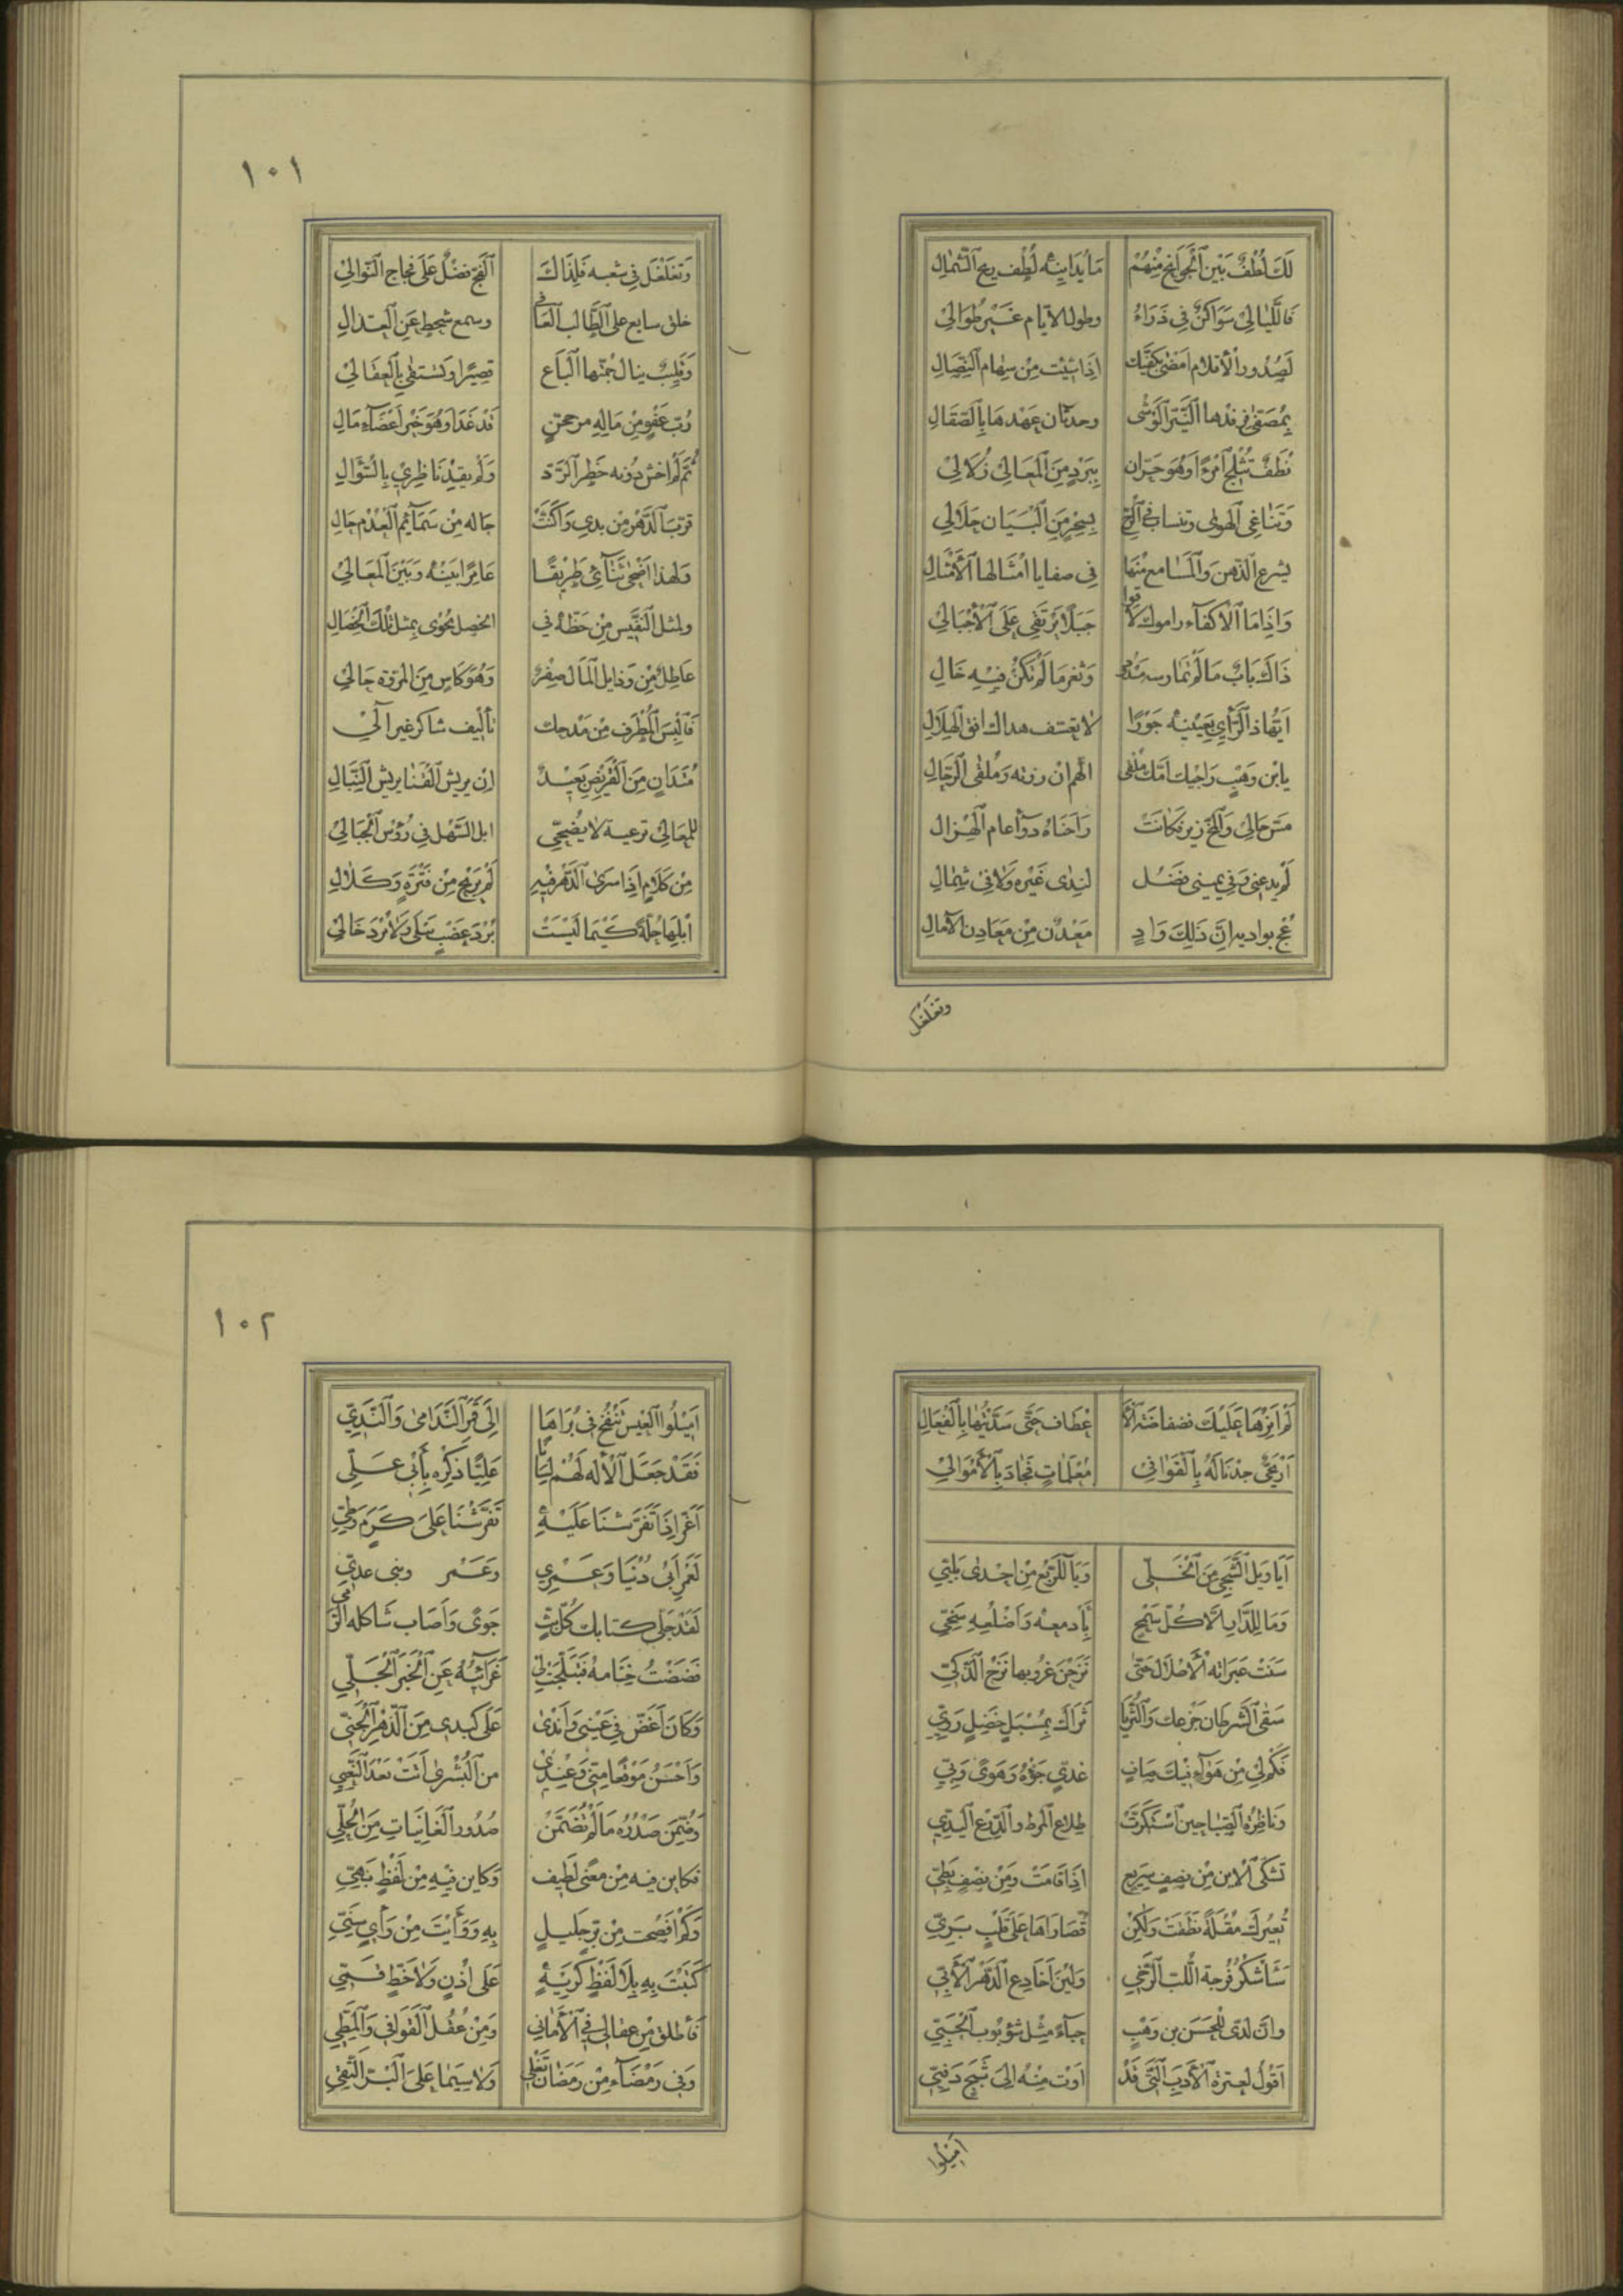 لَكَ لُطْفٌ بَيْنَ اَلْجَوَانِحِ مِنْهُمْ مَا يُدَانِيْهِ لُطْفُ رِيْحِ اَلشَّمَالِ
فَاللَّيَالِيْ سَوَاكِنٌ فِي ذَرَاءُ وطول الأيام غَيْرُ طُوَالِيْ
لَصُدُورُ اَلْأَقْلَامِ اَمْضَى بِكَفَّيْك اِذَا شِئْتَ مِنْ سِهَامِ اَلنِّصَالِ
وحدثان عَهْدِهَا بِالصَّقَالِ
نُطَفٌ تُثْلِجُ اَمْرَءًا وَهُوَ حَرَّان بِبَرْدٍ مِنَ اَلْمَعَالِيْ زُلَالِيْ
وَتُنَاغِي اَلْهَوٰى وتنساب فِي اَلرُّوح بِسِحْرٍ مِنَ اَلْبَيَانِ حَلَالِيْ
يشرع اَلذِّهْنَ وَاَلْمَسَامِعَ مِنْهَا فِي صفايا اَمْثَالِهَا اَلْأَمْثَالِ
وَاِذَا مَا اَلْأَكْفَاءُ راموك لَاقوا جَبَلًا يَرْتَقِي عَلَى اَلْأَجْبَالِيْ
ذَاكَ بَابٌ مَا لَمْ تُمَارِسه وَثَغْرٌ مَا لَمْ تَكُنْ فِيْهِ خَالِ
اَيُّهَا ذَا اَلرَّأْيِ بِعَيْنَيْهِ جَوْرًا لَا تعتسف هداك افق اَلْهِلَالِ
يَا بْنَ وَهْبٍ رَاجِيْك اَمَّكَ مُلْقًى اَلْهَمِّ اِنْ زرته وَمُلْقَى اَلرِّحَالِ
مَسَّ حَالِيْ وَاَلْمَخُّ زِيْرٌ فَكَانَتْ رَاحَتَاهُ دَوَاءَ عام اَلْهُزَال
لَمْ يَدَعْنِي وَفِي يميني فَضْل لِنَدٰى غَيْرِهِ وَلَا فِي شِمَالِ
عُجْ بواديه اِنَّ ذَلِكَ وَادٍ مَعْدِنٌ مِنْ مَعَادِنِ الْآمَالِ
وتغلغل
١٠١
وَتَغَلْغَلْ فِي شعبه فَلِذَاكَ اَلْفَجِّ فَضْلٌ عَلَى فِجَاجِ اَلنَّوَالِيْ
خلق سايع عَلَى اَلطَّالِبِ اَلْعَافي وسمع شحط عَنِ اَلْعُذَّالِ
وَقَلِيْبٌ ينال جُمَّتَهَا اَلْبَاع قَصِيْرًا وَيُسْتَقَى بِالْعِقَالِيْ
رُبَّ عَفْوٍ مِنْ مَالِهِ مرجحن قَدْ غَدَا وَهُوَ خَيْرُ اَعْضَاءِ مَالِ
ثُمَّ لَمْ اخش دُوْنه خَطَرَ اَلرَّدّ وَلَمْ يقيد نَاظِرِيْ بِالسُّؤَالِ
قربَ اَلدَّهْرُ مِنْ يدي وَاَكْثَبَتْ حَاله مِنْ سَمَائِمِ اَلْعُدْمِ حَالِ
وَلِهَذَا اَضْحَى ثَنَائِي طَرِيْقًا عَامِرًا بَيْنَهُ وَبَيْنَ اَلْمَعَالِيْ
ولمثل اَلنَّفِيْسِ مِنْ خَطِّهِ فِي الخصل يُحْوٰى بِمِثْلِ تِلْكَ اَلْخِصَالِ
عَاطِلٌ مِنْ رذايل اَلْمَالِ صِفْرٌ وَهُوَ كَاسٍ مِنَ المروّه حَالِيْ
فَالْبَسِ اَلْمُطْرَفَ مِنْ مَدْحِك تَأْلِيْف شاكر غير آلِيْ
مُتَدَانٍ مِنَ اَلْقَرِيْضِ بَعِيْدٌ اِنْ يريش اَلْفَتَى يريش اَلنِّبَالِ
لِلْمَعَالِيْ ترعية لَا يُضَحِّي ابل السَّهْلِ فِي رُؤُسِ اَلْجِبَالِيْ
مِنْ كَلَامٍ اِذَا سَرَى اَلدَّهْرُ فِيْهِ لَمْ يَرُحْ مِنْ فَتْرَةٍ وَكَلَالِ
اَبْلِهَا حُلَّةً كَيْمَا لَيْسَتْ بُرْدَ عَصْبٍ يبلى وَلَا بُرْدَ خَالِيْ
لَمْ اَثْرِهَا عَلَيْكَ فضفاضة اَلْأَعْطَاف حَتّٰى سَدَّيْتُهَا بِالْفَعَالِ
اَرْيَحِيٌّ جِدْنَا لَهُ بِالْقَوَافِي مُعْلَمَاتٍ فَجَادَ بِالْأَمْوَالِيْ
اَيَا وَيْلَ اَلشَّجِيِّ مِنَ اَلْخَلِيِّ وَيَا لِلرَّبْعِ مِنْ اِحْدٰى بَلِيِّي
وَمَا لِلدَّارِ اِلَّا كُلّ سَمْحٍ بِأَدْمعه وَاَضْلُعِهِ سَخِيِّ
سَنَتْ عَبَرَاته اَلْأَطْلَالَ حَتّٰى نَزَحْنَ غُرُوبَها نَزْحَ اَلرَّكِيِّ
سَقَى اَلشَّرَطَانِ جَزْعَك وَاَلثُّرَيَّا ثَرَاكَ بِمُسْبِلٍ خَضِلٍ رَوِيِّ
فَكَمْ لِيْ مِنْ هَوَاءٍ فِيْكَ صَافٍ غَدِيٍّ جَوُّهُ وَهَوًى وَبِيِّ
وَنَاظِرَةُ اَلصِّبَا حِيْنَ اَسْبَكَرَّتْ طِلَاع اَلْمِرْط والدِّرْع اَلْيَدِيِّ
تَشَكَّى اَلْأَيْنَ مِنْ نصف سَرِيْعٍ اِذَا قَامَتْ وَمِنْ نِصْفٍ بَطِيِّ
تُعِيْرُكَ مُقْلَةً نَطَفَتْ وَلٰكِنْ قُصَارَاهَا عَلَى قَلْبٍ بَرِيِّ
سَأَشْكُرُ فَرْجَةَ اللَّبَبِ اَلرَّخِيِّ وَلِيْنَ اَخَادِعِ اَلدَّهْرِ اَلْأَبِيِّ
وَاِنَّ لَدٰى لِلْحَسَنِ بن وَهْبٍ حِبَاءً مِثْلَ شُؤْبُوبِ اَلْحَبِيِّ
اَقُولُ لِعِتْرَةِ اَلْأَدَبِ اَلَّتِي قَدْ اَوَتْ مِنْهُ اِلَى شَبَحٍ دَفِيِّ
اميلوا
١٠٢
اَمِيْلُوا اَلْعِيْسَ تَنْفُخْ فِي بُرَاهَا اِلَى قَمَرِ اَلنَّدَامٰى وَاَلنَّدِيِّ
فَقَدْ جَعَلَ اَلْأِلَه لَهُمْ لِسَانًا عَلِيًّا ذِكْرُهُ بِأَبِي عَلِيِّ
اَغَرُّ اِذَا تَفَرَّشْنَا عَلَيْهِ تَفَرَّشْنَا عَلَى كَرَمٍ وَطِيِّ
لَعَمْرُ اَبِي دُنْيَا وَعَمْرِي وَعَمْر وبنى عدِيِّ
لَقَدْ جَلَّى كتابك كُلَّ بَثٍّ جَوًى وَاَصَابَ شَاكله الرَّمي
فَضَضْتُ خِتَامهُ فَتَبَلَّجَتْ لِيْ غَرَائِبُهُ عَنِ اَلْخَبَرِ اَلْجَلِيِّ
وَكَانَ اَغَضَّ فِي عَيْنِي وَاَنْدٰى عَلَى كبدي مِنَ اَلزَّهْرِ اَلْجَنِيِّ
وَاَحْسَنَ مَوْقِعًا مِنِّي وَعِنْدِيْ من اَلْبُشْرٰى اَتَتْ بَعْدَ اَلنَّعِيِّ
وَضُمِّنَ صَدْرُهُ مَا لَمْ تُضَمَّنْ صُدُورُ اَلْغَانِيَاتِ مِنَ اَلْحُلِيِّ
فكاين فيه مِنْ مَعْنًى لَطِيف وَكَاين فِيْهِ مِنْ لَفْظٍ بَهِيِّ
وَكَمْ اَفْصَحْت مِنْ بِرٍّ جَلِيلٍ بِهِ وَوَأَيْتَ مِنْ وَأْيٍ سَنِيِّ
كَتَبْتَ بِهِ بِلَا لَفْظٍ كَرِيْهٍ عَلَى اُذُنٍ وَلَا خَطٍّ قَمِيِّ
فَأَطْلِقْ مِنْ عِقَالِي فِي اَلْأَمَانِي وَمِنْ عُقُلِ اَلْقَوَافِي وَاَلْمَطِيِّ
وَفِي رَمْضَاءَ مِنْ رَمَضَانَ تَغْلِي وَلَا سِيَمَا عَلَى اَلْبَرِّ اَلتَّقِيِّ